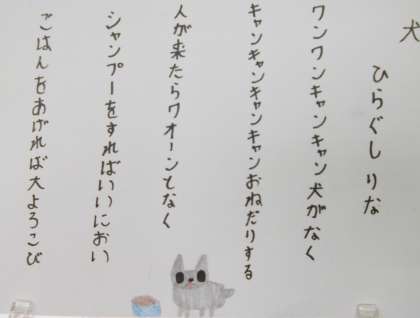 犬
ひらぐしりな
ワンワンキャンキャン犬がなく
キャンキャンキャンキャンおねだりする
人が来たらワオーンとなく
シャンプーをすればいいにおい
ごはんをあげれば大よろこび